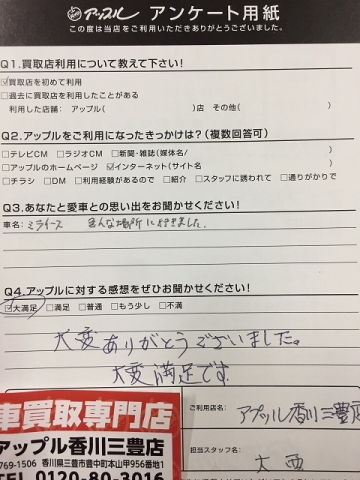 アップル アンケート用紙
この度は当店をご利用いただきありがとうございました。
Q1.買取店利用について教えて下さい!
☑買取店を初めて利用
□過去に買取店を利用したことがある
利用した店舗: アップル( )店 その他( )
Q2.アップルをご利用になったきっかけは?(複数回答可)
□テレビCM □ラジオCM □新聞・雑誌(媒体名/ )
□アップルのホームページ ☑インターネット(サイト名 )
□チラシ □DM □利用経験があるので □紹介 □スタッフに誘われて □通りがかりで
Q3.あなたと愛車との思い出をお聞かせください!
車名: ミライース 色んな場所に行きました。
Q4.アップルに対する感想をぜひお聞かせください!
☑大満足 □満足 □普通 □もう少し □不満
大変ありがとうございました。
大変満足です
ご利用店名: アップル香川三豊店
担当スタッフ名: 大西
車買取専門店
アップル香川三豊店
769-1506 香川県三豊市豊中町本山甲956番地1
TEL 0120-80-3016